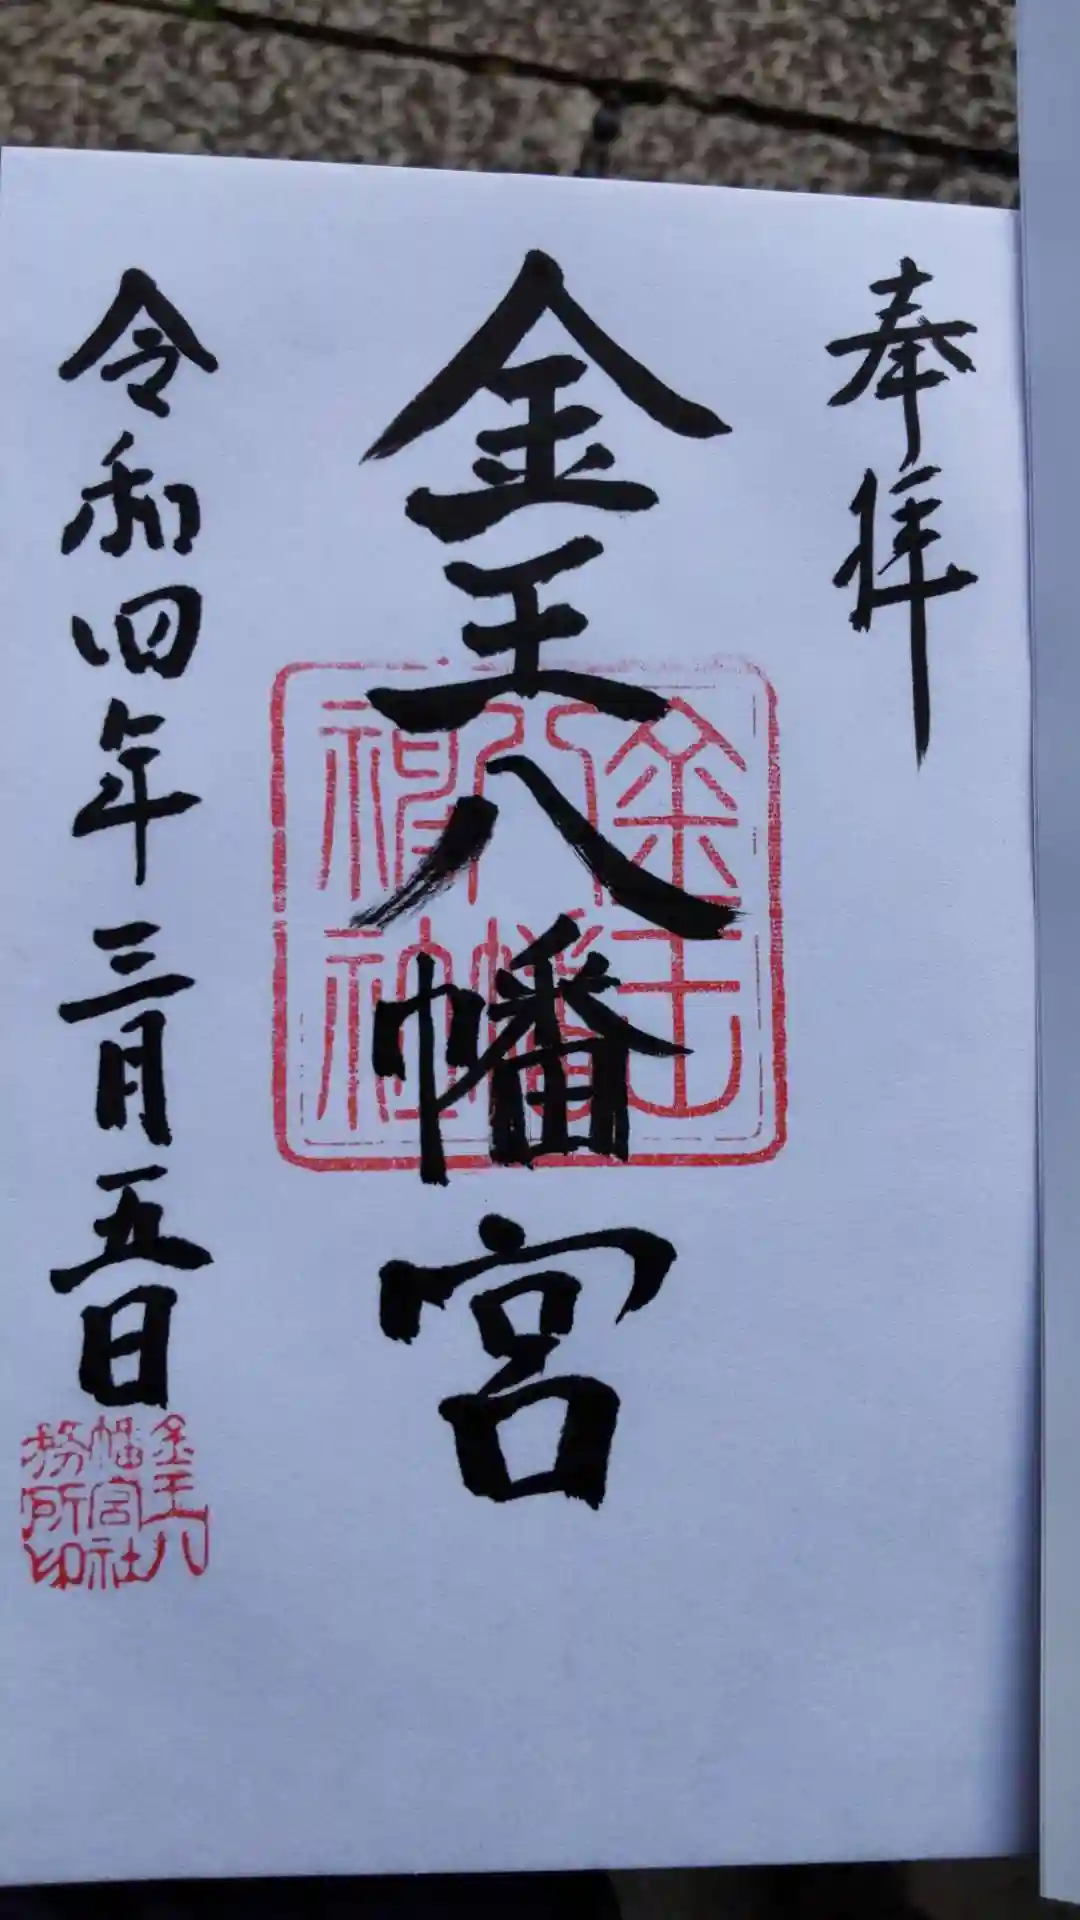 奉拝
金王八幡宮
金王八幡神社
令和四年三月五日
金王八幡宮社務所印